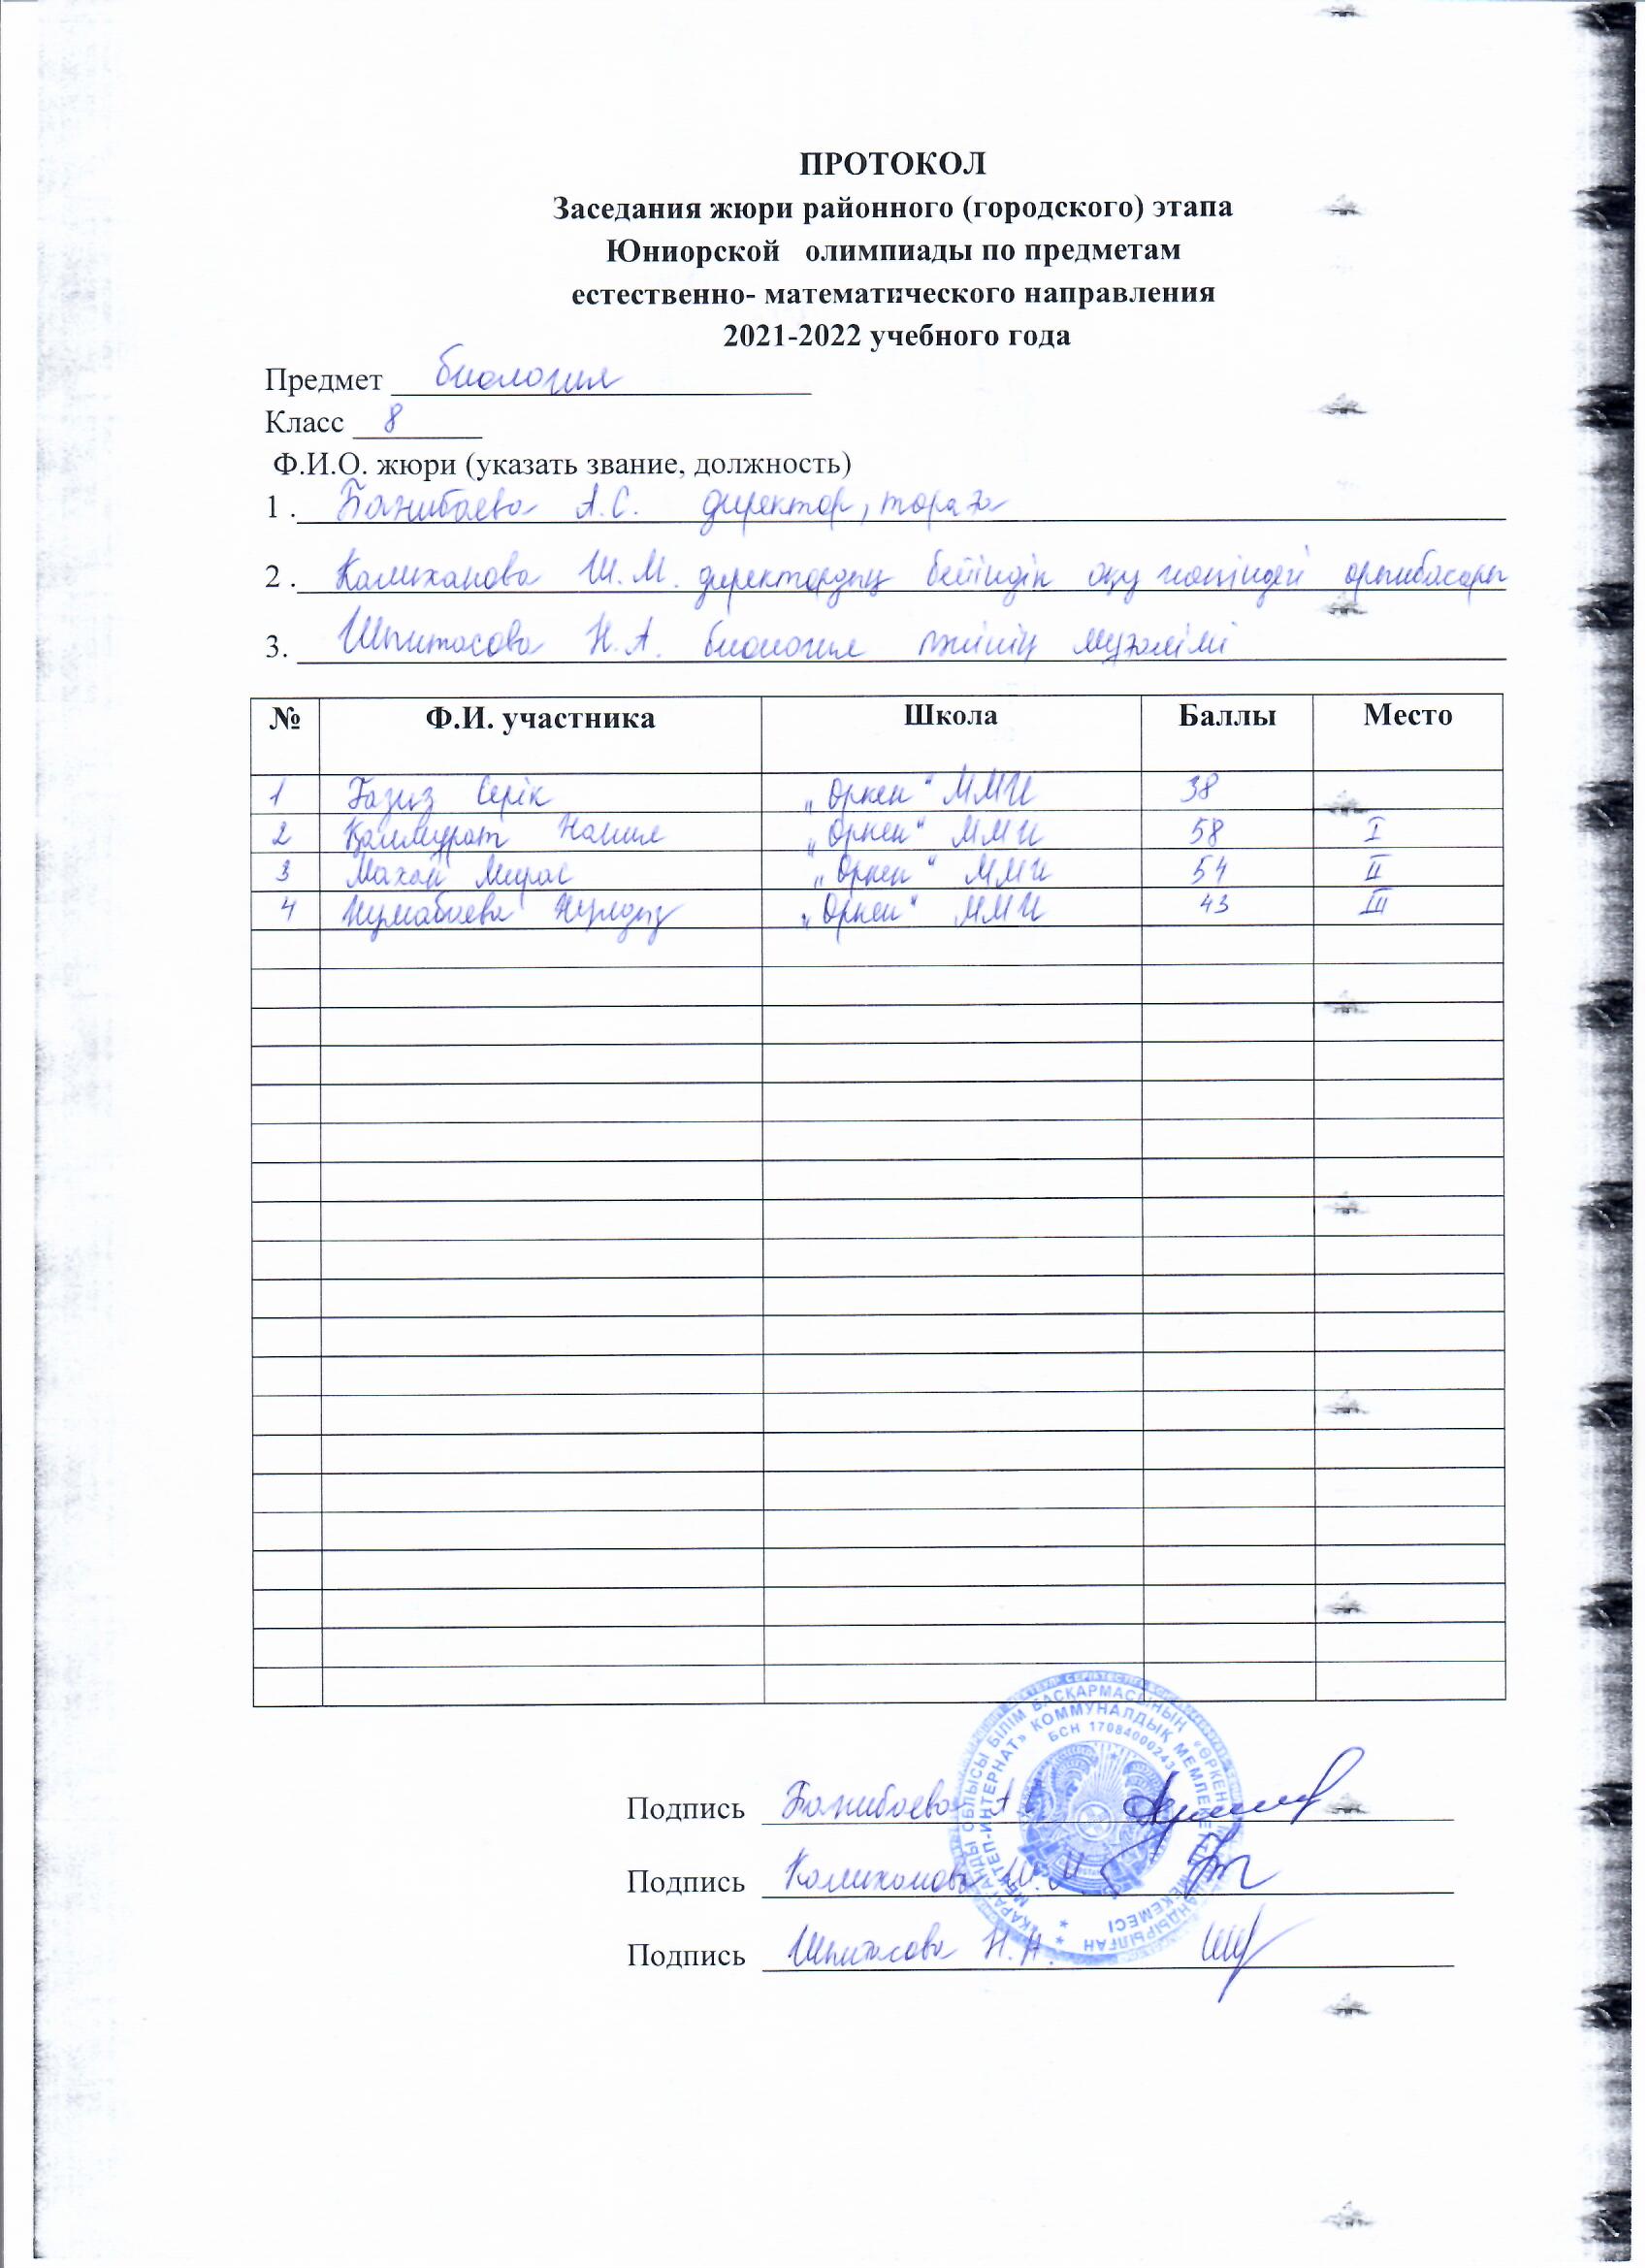 ПРОТОКОЛ
Заседания жюри районного (городского) этапа
Юниорской олимпиады по предметам
естественно- математического направления
2021-2022 учебного года
Предмет биология
Класс 8
Ф.И.О. жюри (указать звание, должность)
1 . А.С. директор, төраға
2 . Калиханова Ш.М. директордың бейіндік оқу жөніндегі орынбасары
3. Шпитасова Н.А. биология пәнінің мұғалімі
№ Ф.И. участника Школа Баллы Место
1 Ғазиз Серік „Өркен“ ММИ 38
2 „Өркен“ ММИ 58 I
3 Махай Мирас „Өркен“ ММИ 54 II
4 „Өркен“ ММИ 43 III
Подпись
Подпись Калиханова Ш.М
Подпись Шпитасова Н.А.
ҚАРАҒАНДЫ ОБЛЫСЫ БІЛІМ БАСҚАРМАСЫНЫҢ «ӨРКЕН»
МЕКТЕП-ИНТЕРНАТ» КОММУНАЛДЫҚ МЕМЛЕКЕТТІК МЕКЕМЕСІ
БСН 1708400024